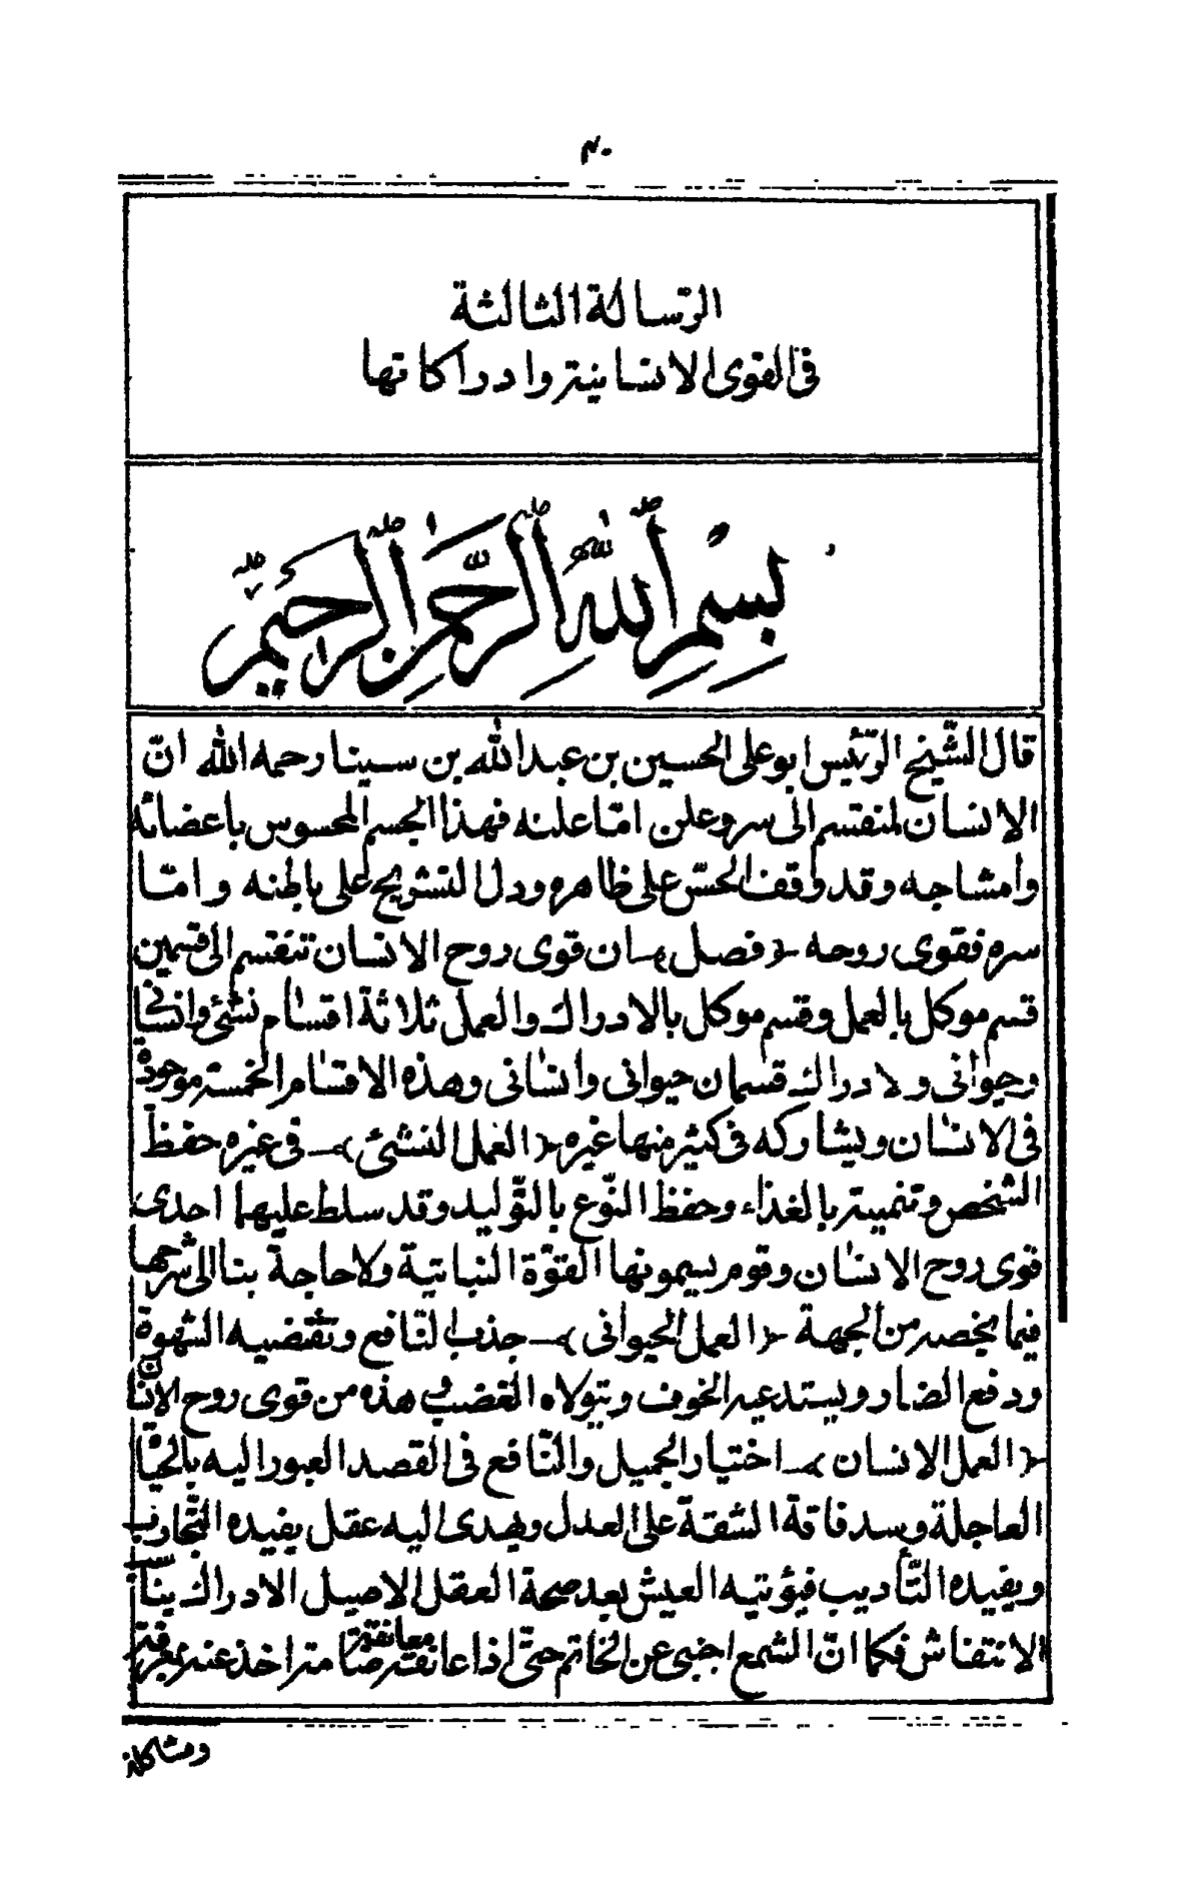 ٤٠
الرّسالة الثالثة
فى القوى الانسانية وادراكاتها
بِسْمِ اللّٰهِ الرَّحْمٰنِ الرَّحِيْمِ
قال الشّيخ الرّئيس ابو على الحسين بن عبد الله بن سينا رحمه الله انّ
الانسان لمنقسم الى سر وعلن امّا علنه فهذا الجسم المحسوس باعضائه
وامشاجه وقد وقف الحسّ على ظاهره ودل التشريح على باطنه وامّا
سره فقوى روحه (فصل) ان قوى روح الانسان تنقسم الى قسمين
قسم موكل بالعمل وقسم موكل بالادراك والعمل ثلاثة اقسام نشئى وانسانى
وحيوانى ولادراك قسمان حيوانى وانسانى وهذه الاقسام الخمسة موجودة
فى الانسان ويشاركه فى كثير منها غيره (العمل النشئى) فى غيره حفظ
الشخص وتنميته بالغذاء وحفظ النّوع بالتّوليد وقد سلط عليهما احدى
قوى روح الانسان وقوم يسمونها القوّة النباتية ولا حاجة بنا الى شرحها
فيما يخصه من الجهة (العمل الحيوانى) جذب النّافع وتقتضيه الشهوة
ودفع الضار ويستدعيه الخوف ويتولاه الغضب وهذه من قوى روح الانسان
(العمل الانسان) اختيار الجميل والنّافع فى القصد العبور اليه بالحياة
العاجلة وسد فاقة الشقة على العدل ويهدى اليه عقل يفيده التّجارب
ويفيده التّأديب فيؤتيه العيش بعد صحة العقل الاصيل الادراك يناسب
الانتقاش فكما انّ الشمع اجنبى عن الخاتم حتّى اذا عانقه معانقة ضامة اخذ عنه بمعرفة
ومشاكلة